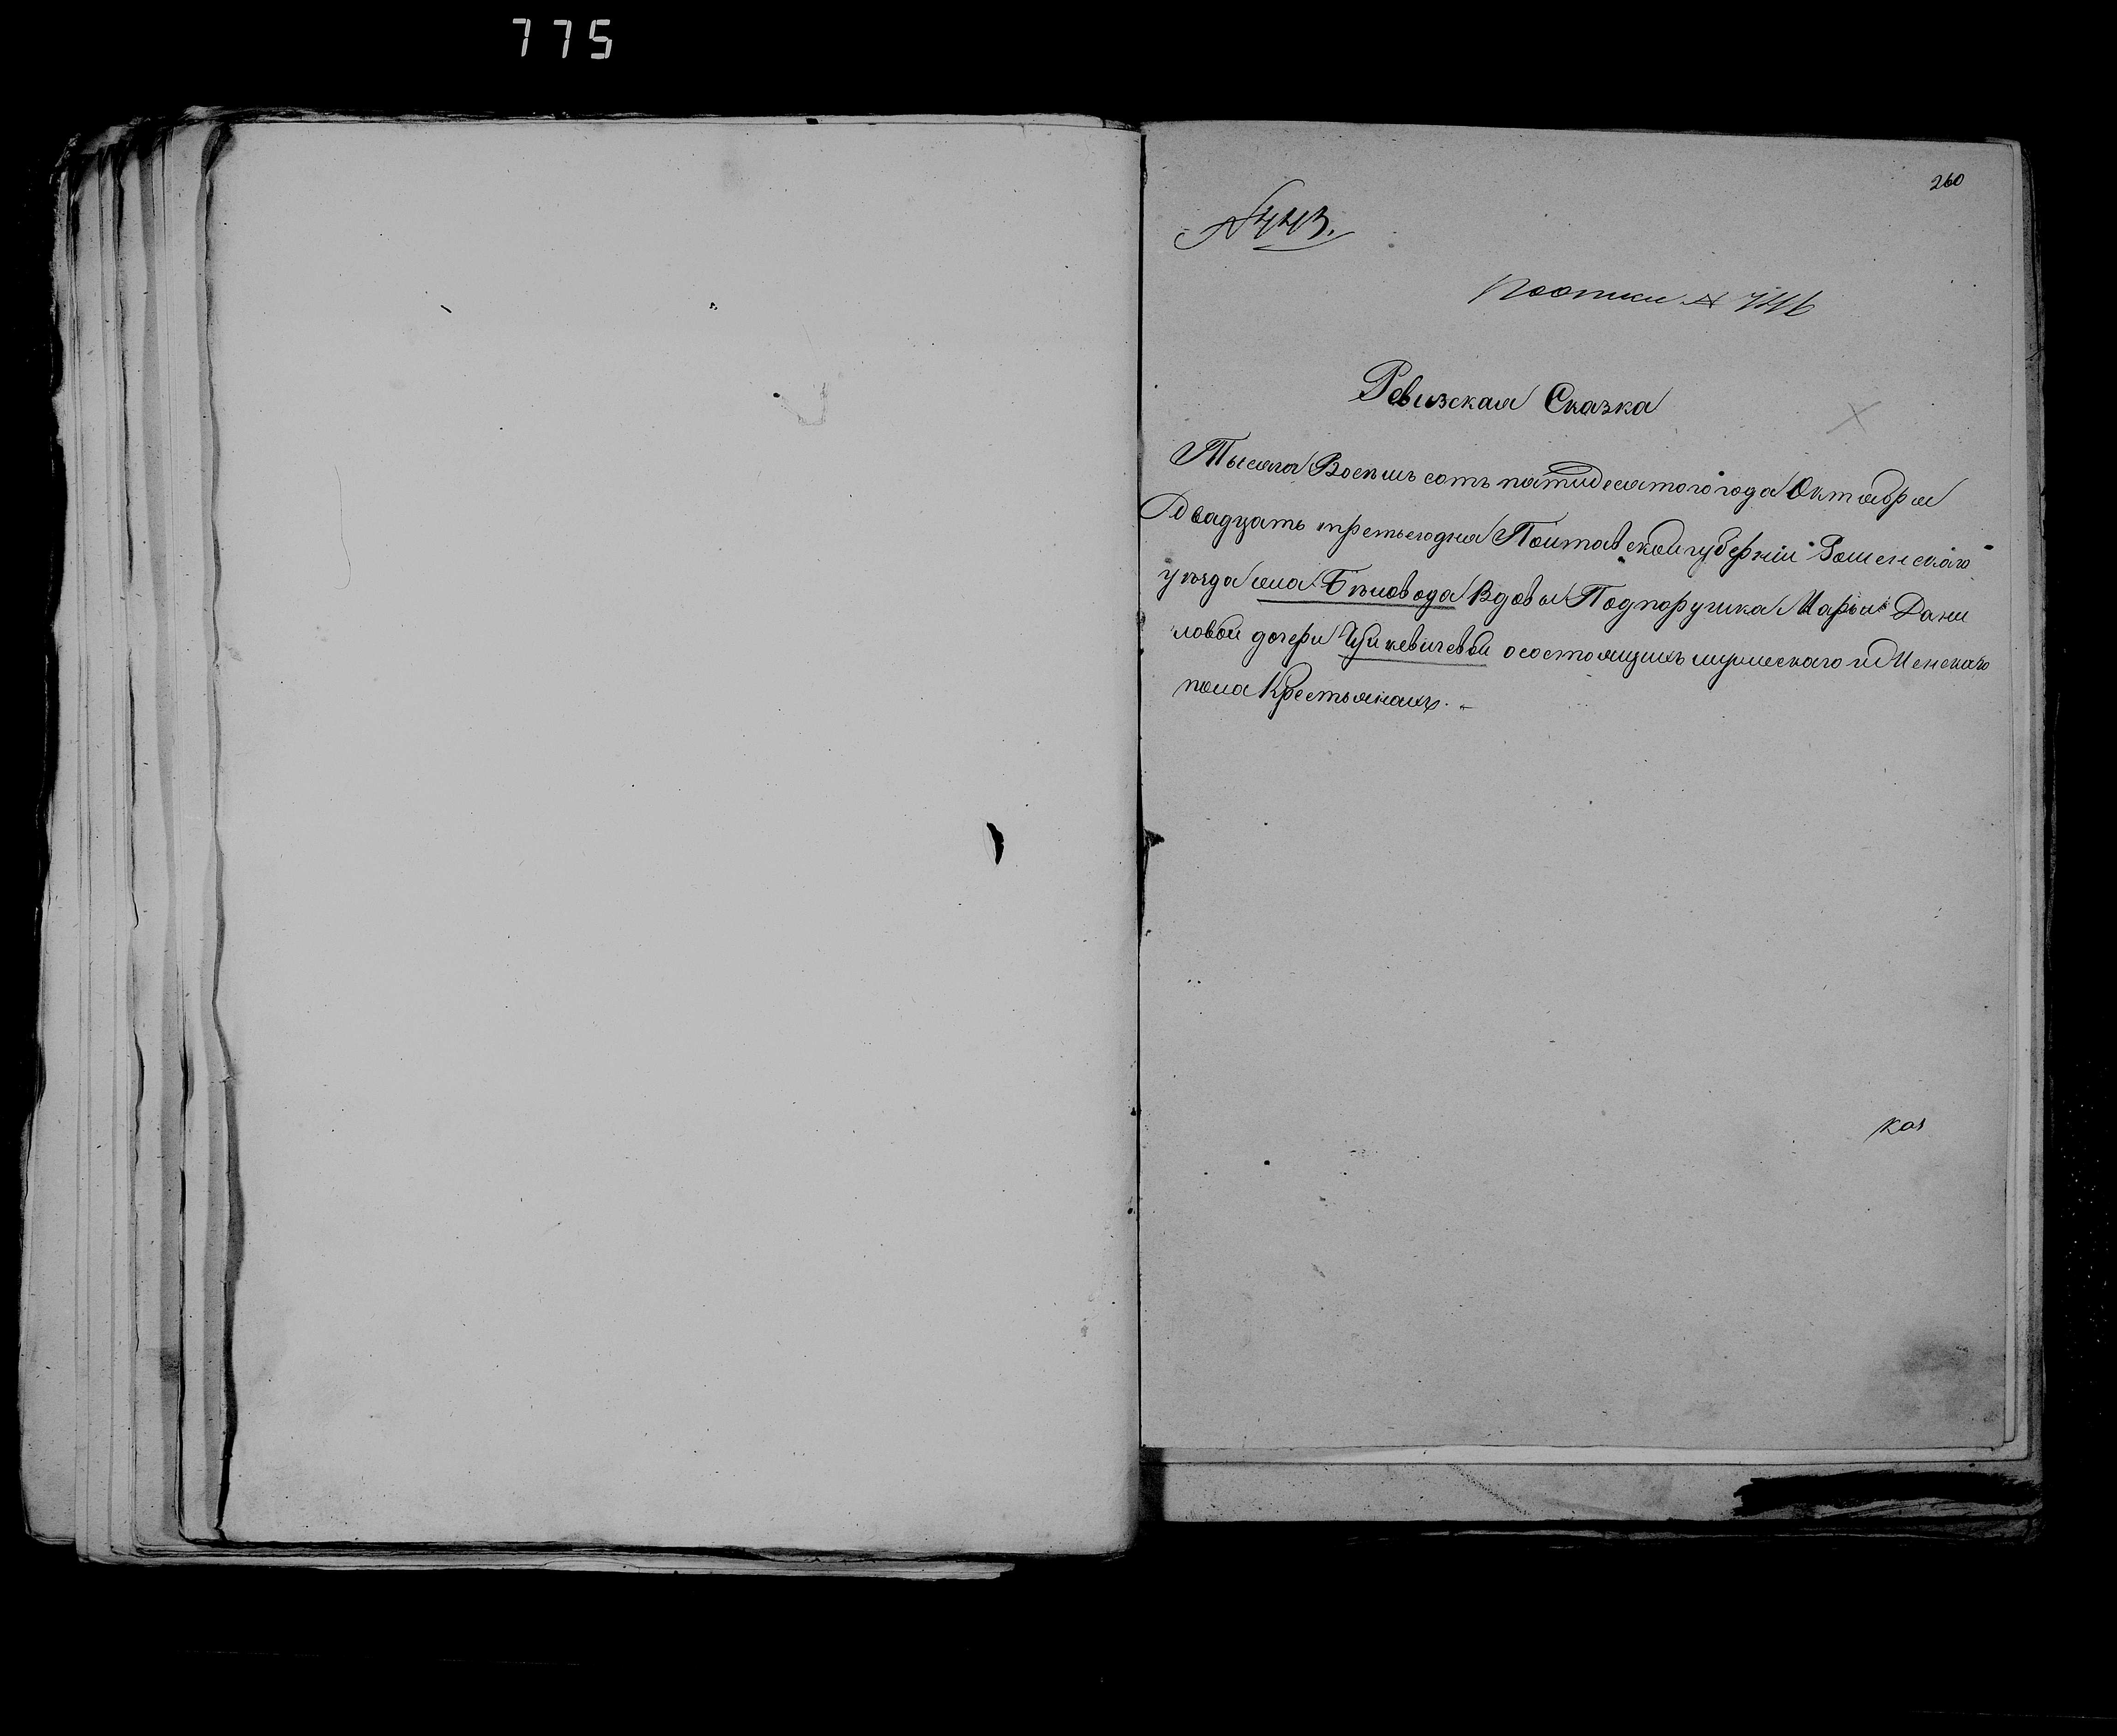 775
260
№ 443.
по описи № 446
Ревизская Сказка
Тысяча Восемь сотъ пятидесятого года Октября
Двадцать третьего дня Полтавской губерніи Роменскаго
уѣзда села Бѣловода Вдовы Подпоручика Марьи Дани
ловой дочери Чуйкевичевой о состоящихъ мужескаго и Женскаго
пола Крестьянахъ.